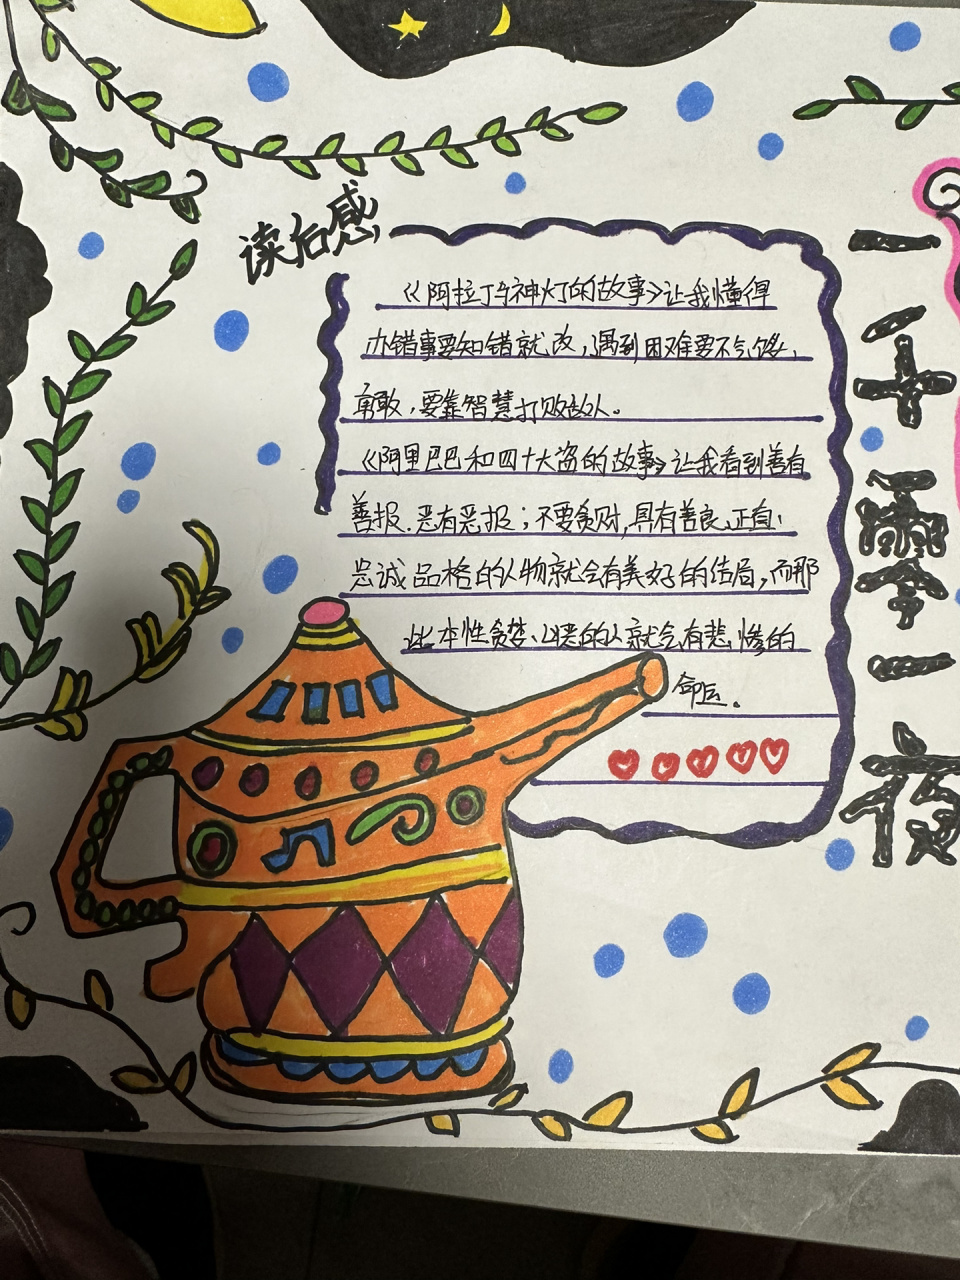 读后感
《阿拉丁与神灯的故事》让我懂得
办错事要知错就改，遇到困难要不气馁、
勇敢，要靠智慧打败敌人。
《阿里巴巴和四十大盗的故事》让我看到善有
善报、恶有恶报；不要贪财，具有善良、正直、
忠诚品格的人物就会有美好的结局，而那
些本性贪婪、凶恶的人就会有悲惨的
命运。
一千零一夜